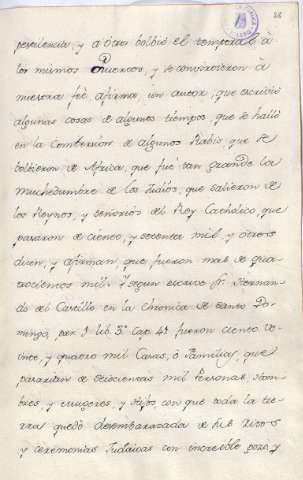 28
pestilencia, y a otros bolbió el temporal à
los mismos Puertos, y se convirtieron à
nuestra fè, afirma un autor, que escribió
algunas cosas de aquellos tiempos, que se halló
en la Combersion de algunos Rabis que se
bolbieron de Africa, que fuè tan grande la
muchedumbre de los Judios, que salieron de
los Reynos, y señorios del Rey Catholico, que
pasaron de ciento, y setenta mil y otros
dicen, y afirman que fueron mas de qua
trocientos mil. Y segun escrive Fr. Hernan
do del Castillo en la Chronica de Santo Do
mingo, par. lib 3º Cap. 4º fueron ciento ve
inte, y quatro mil Casas, ò Familias, que
pasarian de seiscientas mil Personas Hom
bres, y mugeres, y Hijos con que toda la tie
rra quedò desembarazada de sus Ritos
y ceremonias Judaicas con increible gozo, y